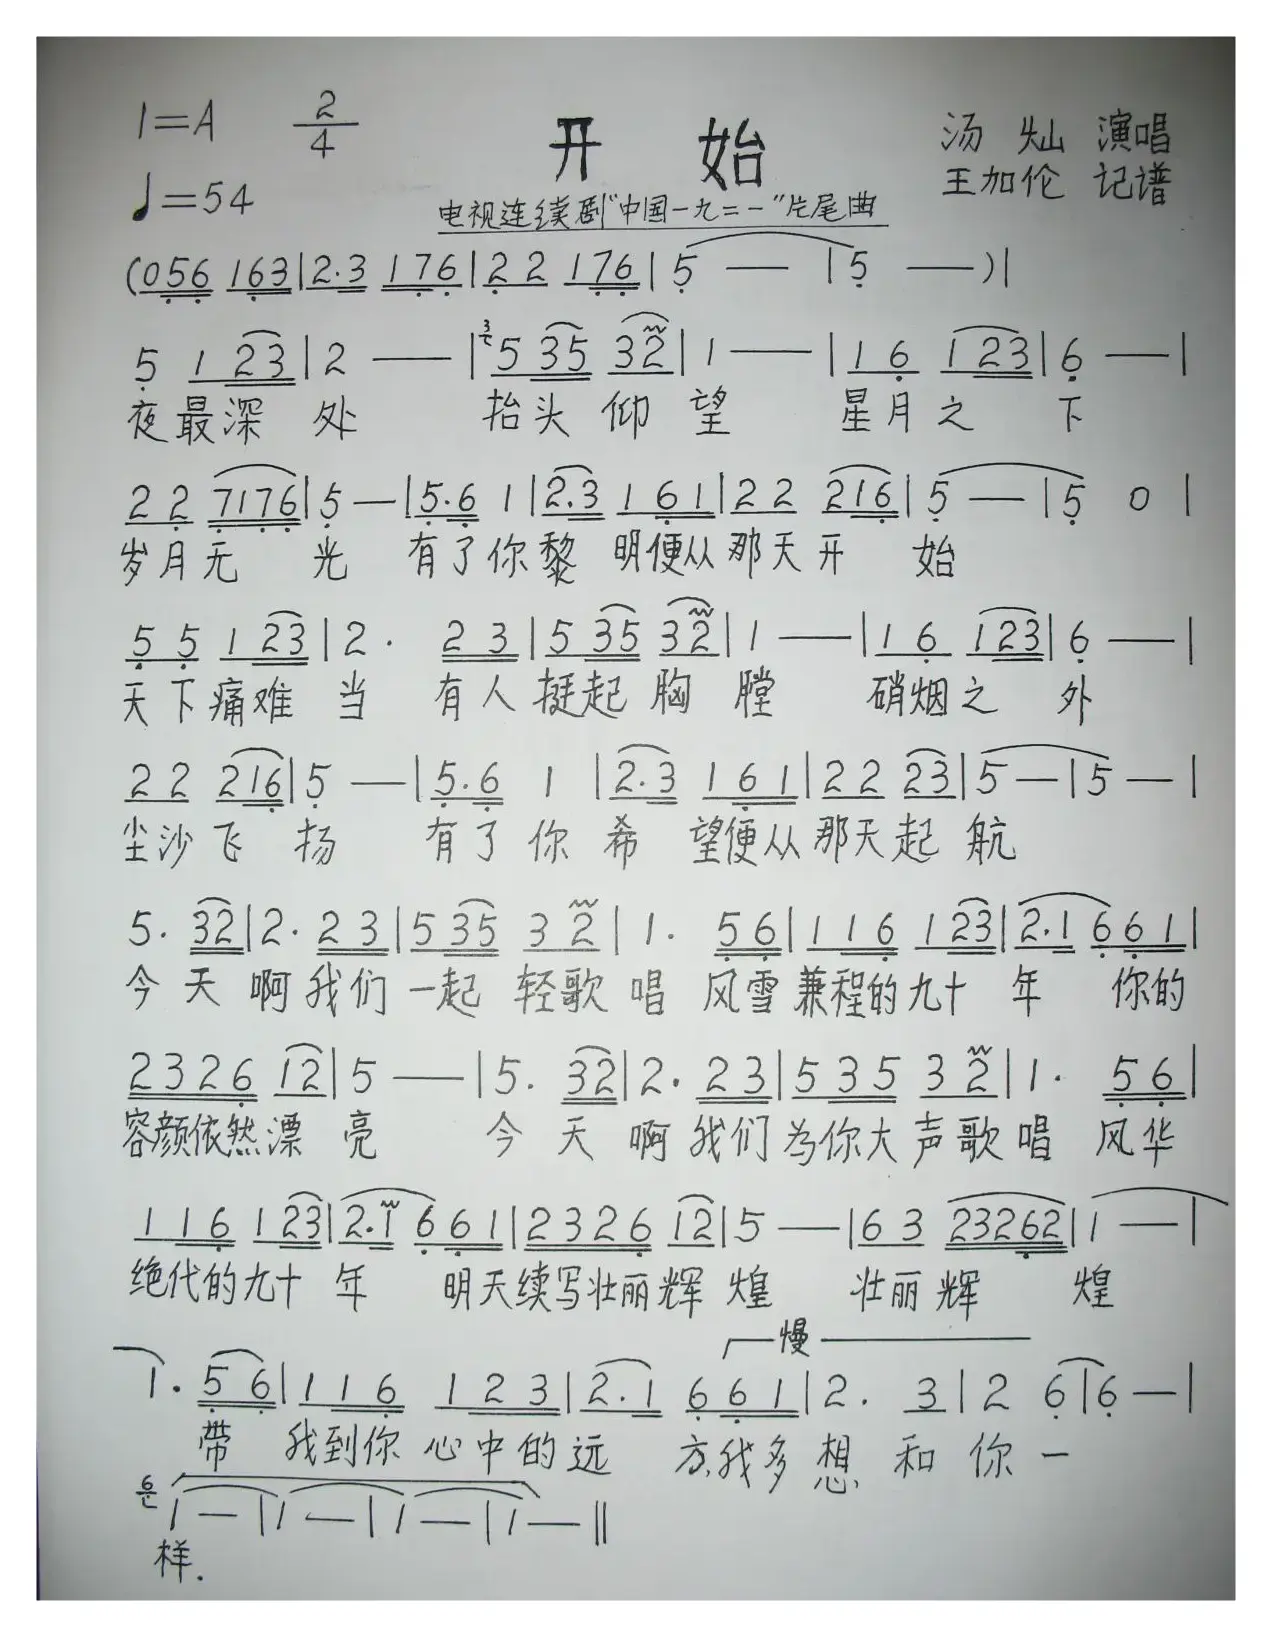 1=A 2/4 开始 汤灿 演唱
♩=54 王加伦 记谱
电视连续剧"中国一九二一"片尾曲
(056 163|2·3 176|2 2 176|5 — |5 — )|
5 1 23|2 — |5 35 32|1 — |1 6 1 23|6 — |
夜最深 处 抬头 仰 望 星月之 下
2 2 7176|5 — |5·6 1|2·3 1 6 1|2 2 216|5 — |5 0 |
岁月无 光 有了你黎 明便从那天开 始
5 5 1 23|2· 2 3|5 35 32|1 — |1 6 123|6 — |
天下痛难 当 有人挺起胸 膛 硝烟之 外
2 2 216|5 — |5·6 1 |2·3 1 6 1|2 2 23|5 — |5 — |
尘沙飞 扬 有了你 希 望便从那天起 航
5· 32|2· 2 3|5 35 3 2|1· 5 6|1 1 6 1 23|2·1 6 6 1|
今 天 啊我们 一起 轻歌 唱 风雪兼程的九十 年 你的
2 3 2 6 12|5 — |5· 32|2· 2 3|5 3 5 3 2|1· 5 6|
容颜依然漂 亮 今 天 啊 我们为你大声歌唱 风华
1 1 6 1 23|2·1 6 6 1|2 3 2 6 12|5 — |6 3 23262|1 — |
绝代的九十 年 明天续写壮丽辉 煌 壮丽辉 煌
慢
1· 5 6|1 1 6 1 2 3|2·1 6 6 1|2· 3|2 6|6 — |
带 我到你 心中的远 方,我多想 和 你 一
6 1 — |1 — |1 — |1 — ‖
样.